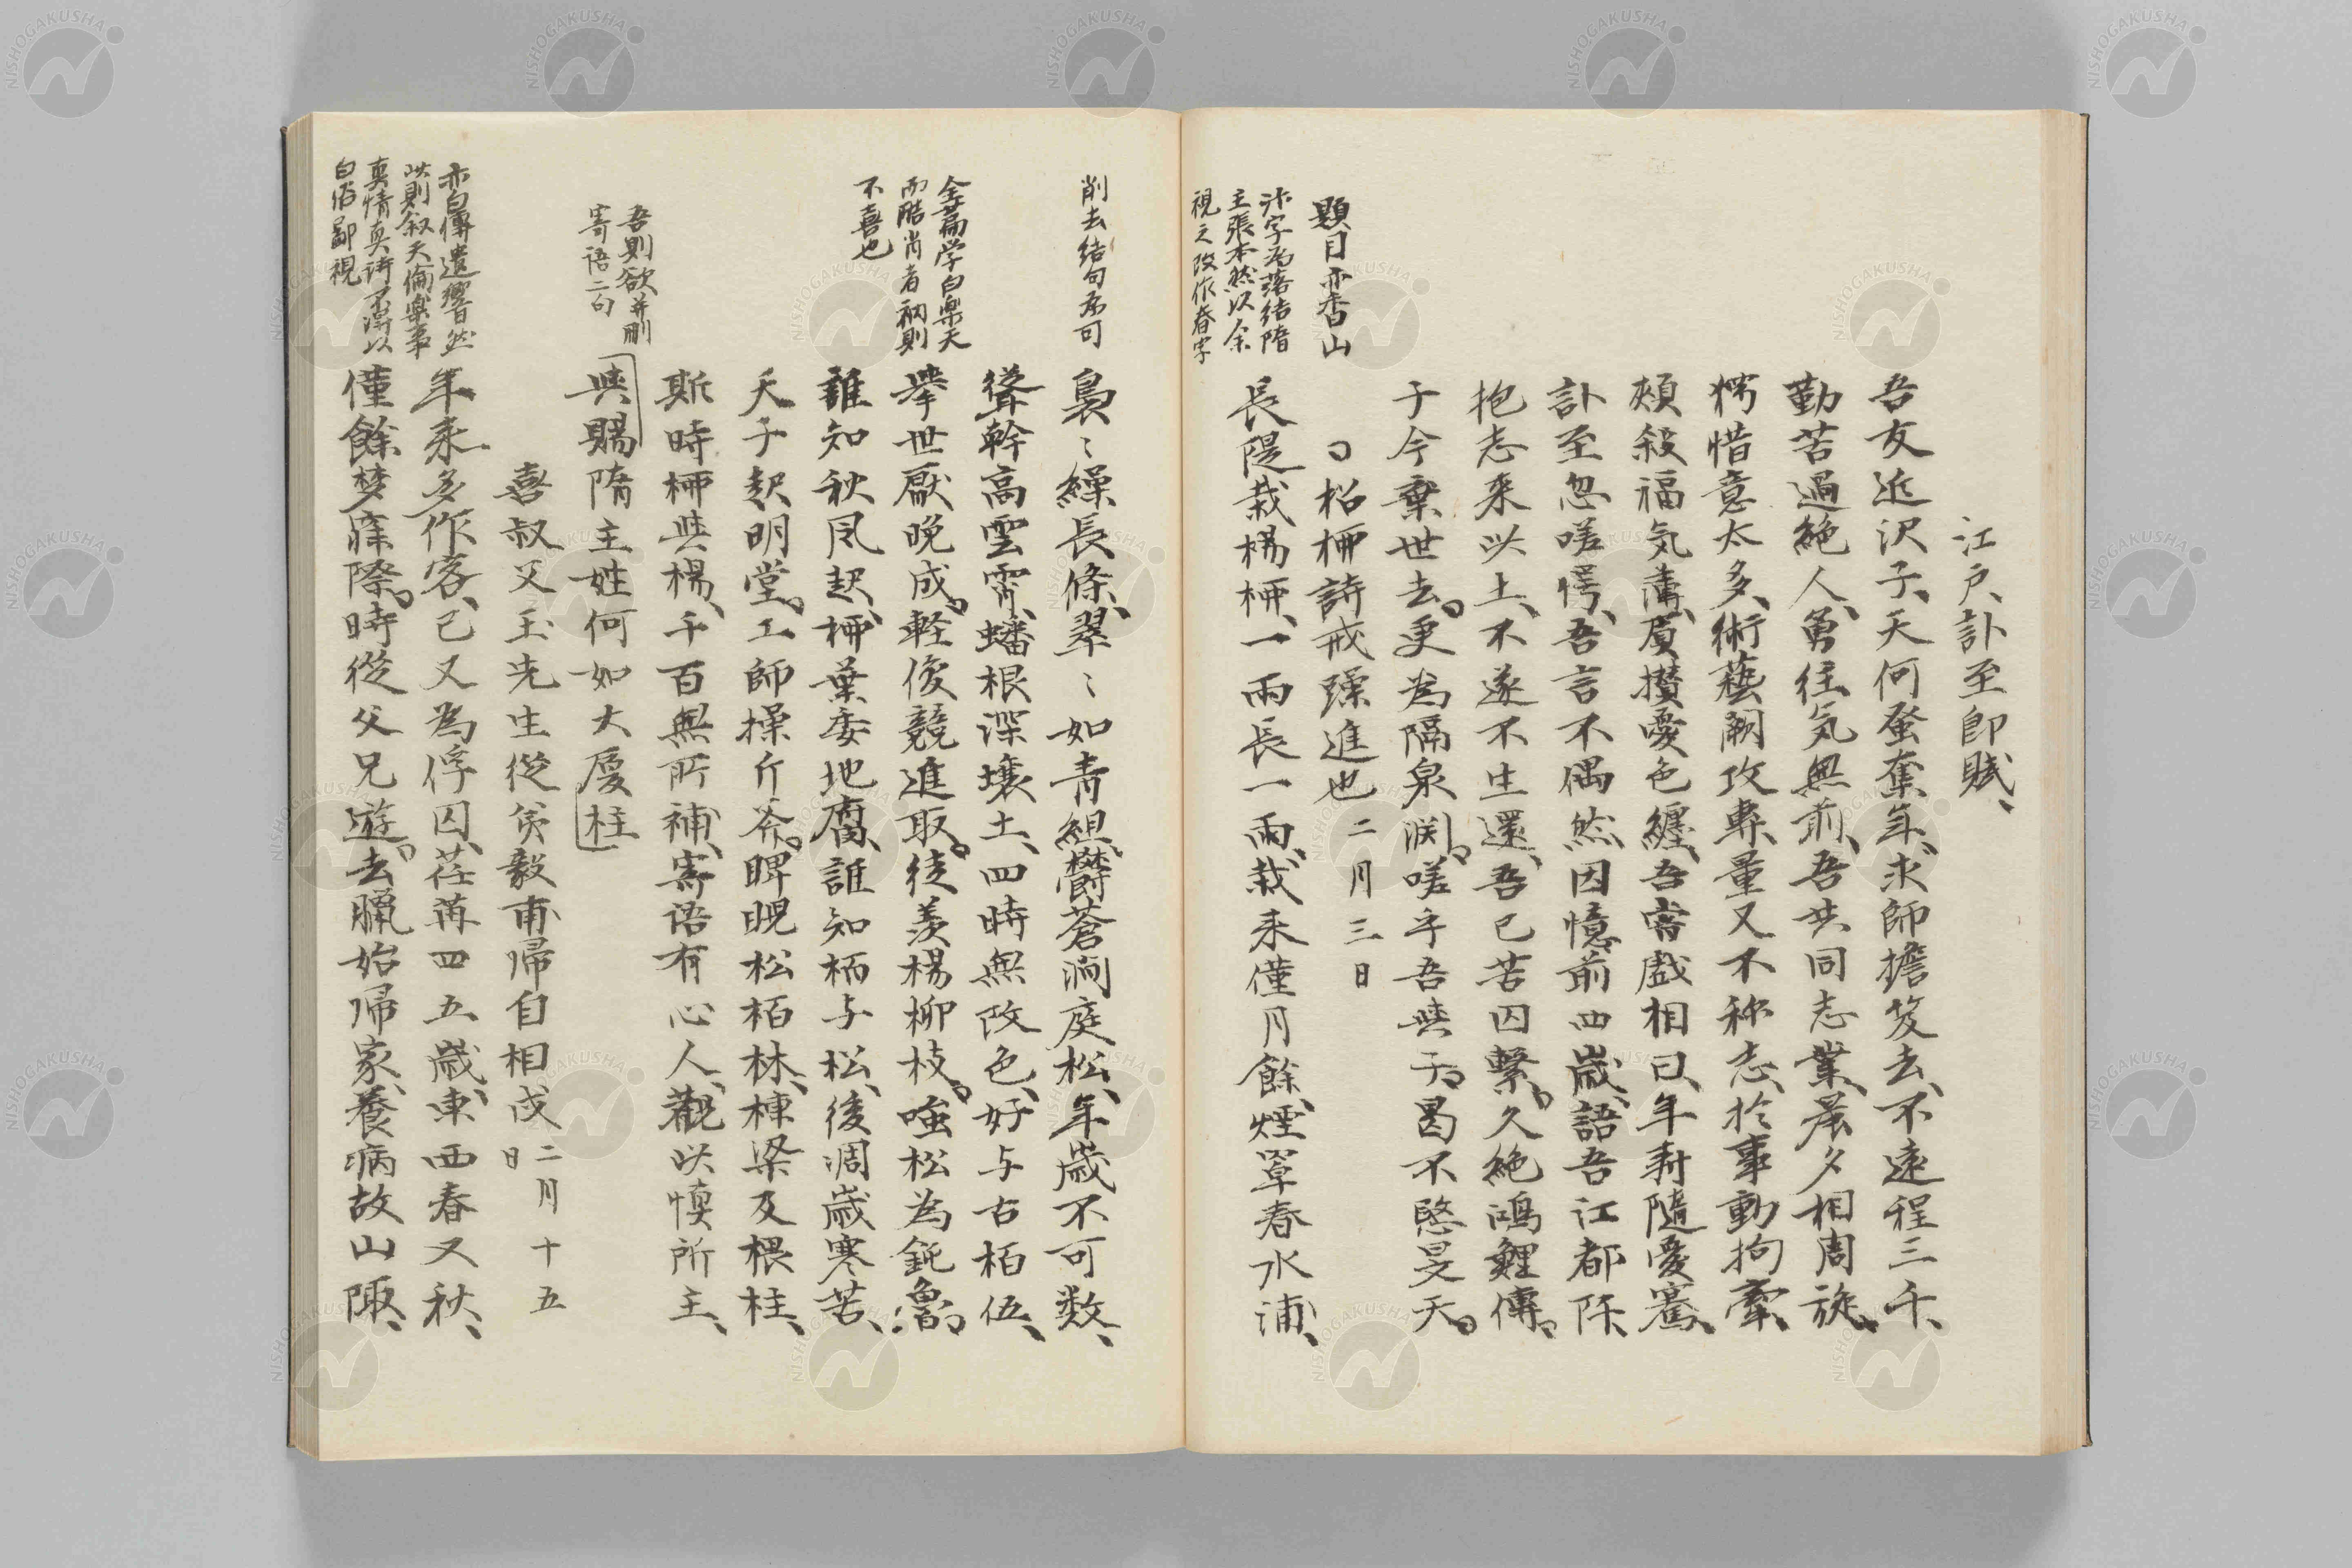 江戸、訃至即賦、
吾友近沢子、天何蚤奪年、求師擔笈去、不遠程三千、
勤苦過絶人、勇往気無前、吾共同志業、晨夕相周旋、
穉惜意太多、術藝闕攻專、量又不称志、於事動拘牽、
頰殺福気薄、眉攢憂色纏、吾嘗戯相曰、年壽隨憂騫、
訃至忽嗟愕、吾言不偶然、因憶前四歳、語吾江都阡、
抱志来此土、不遂不生還、吾已苦囚繋、久絶鴻鯉傳、
于今棄世去、更為隔泉渊、嗟乎吾與子、曷不愍旻天、
松栁詩戒躁進也 二月三日
題目亦香山
汴字為落結隋
主張本然以余
視之改作春字
長隄栽楊栁、一雨長一雨、栽来僅月餘、煙罩春水浦、
削去結句為可
裊〻繰長條、翠〻如青組、欝蒼澗庭松、年歳不可数、
聳幹高雲霄、蟠根深壌土、四時無改色、好与古柏伍、
全篇学白樂天
而酷肖者衲則
不喜也
挙世厭晩成、軽俊競進取、徒羨楊柳枝、嗤松為鈍魯、
誰知秋風起、栁葉委地腐、誰知柄与松、後凋歳寒苦、
天子起明堂、工師操斤斧、睥睨松栢林、棟梁及椳柱、
斯時栁與楊、千百無所補、寄語有心人、觀此慎所主、
吾則欲并刪
寄語二句
與賜隋主姓何如大廈柱
喜叔父玉先生從矦毅甫帰自相戍 二月十五日
亦白傅遺響然
此則叙天倫樂事
真情真詩不得以
白俗鄙視
年来多作客、已又為俘囚、荏苒四五歳、東西春又秋、
僅餘梦寐際、時從父兄遊、去臘始帰家、養病故山陬、